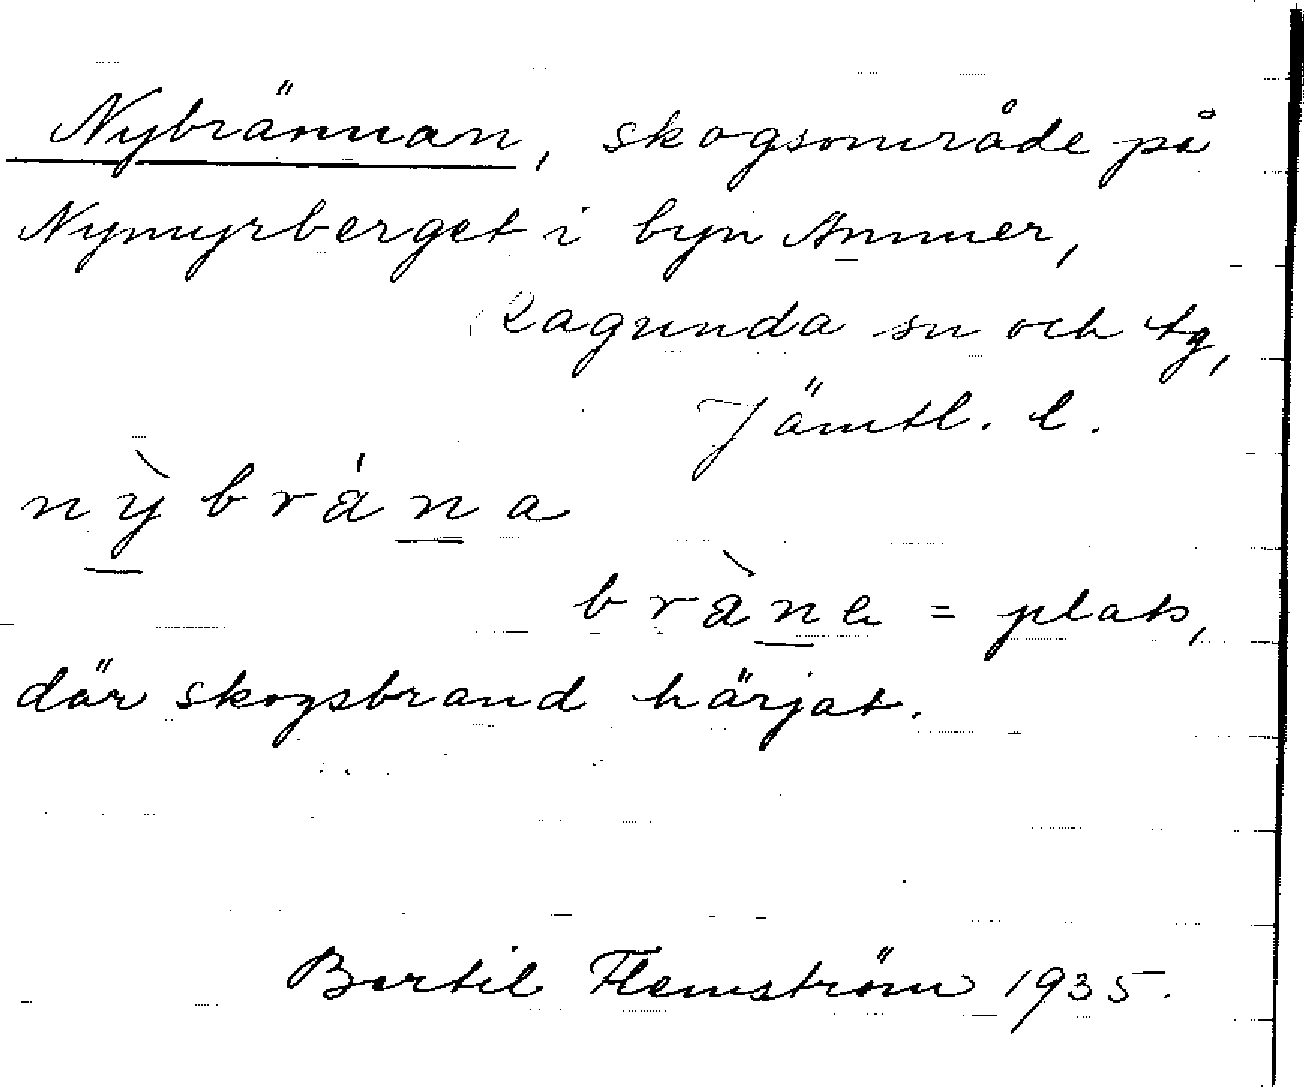 Nybrännan, skogsområde på
Nymyrberget i byn Ammer,
Ragunda sn och tg,
Jämtl. l.
nỳbrána
bràne = plats,
där skogsbrand härjat.
Bertil Flemström 1935.